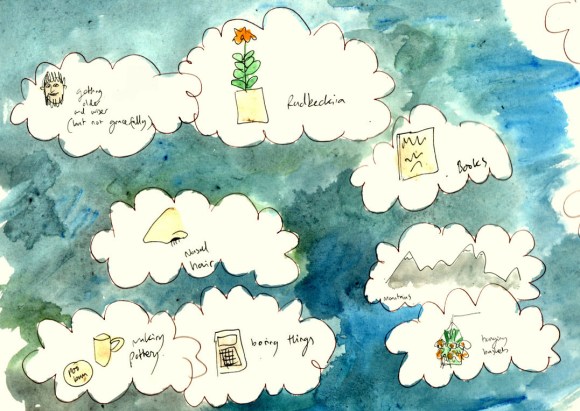 getting
older
and wiser
(but not gracefully)
Rudbeckia
Books
Nasal
hair
Mountains
making
pottery
boring things
hanging
baskets